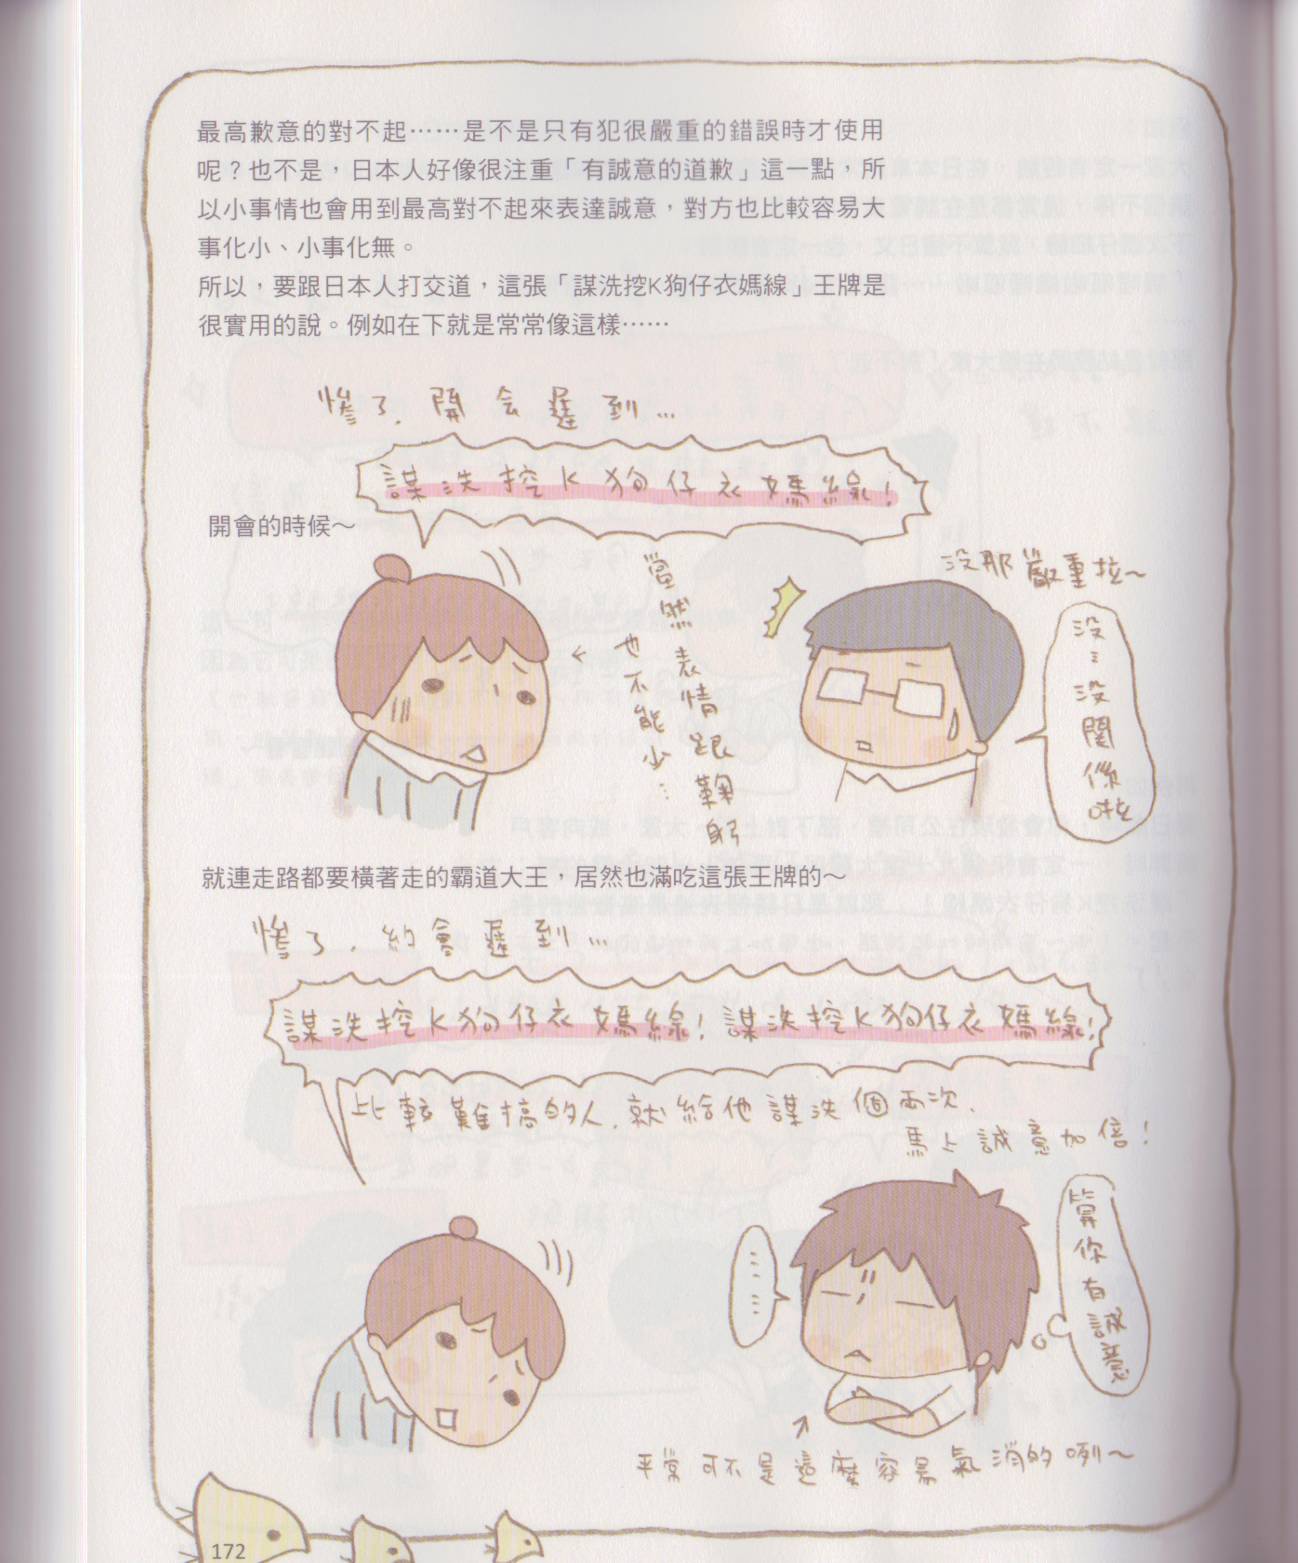 最高歉意的對不起⋯⋯是不是只有犯很嚴重的錯誤時才使用
呢？也不是，日本人好像很注重「有誠意的道歉」這一點，所
以小事情也會用到最高對不起來表達誠意，對方也比較容易大
事化小、小事化無。
所以，要跟日本人打交道，這張「謀洗挖K狗仔衣媽線」王牌是
很實用的說。例如在下就是常常像這樣⋯⋯
慘了,開会遲到...
謀洗挖K狗仔衣媽線!
開會的時候～
當然表情跟鞠躬
也不能少...
没那嚴重拉~
没..没關係啦
就連走路都要橫著走的霸道大王，居然也滿吃這張王牌的～
慘了,約會遲到...
謀洗挖K狗仔衣媽線!謀洗挖K狗仔衣媽線!
比較難搞的人,就給他謀洗個兩次,
馬上誠意加倍!
......
算你有誠意
平常可不是這麼容易氣消的咧~
172